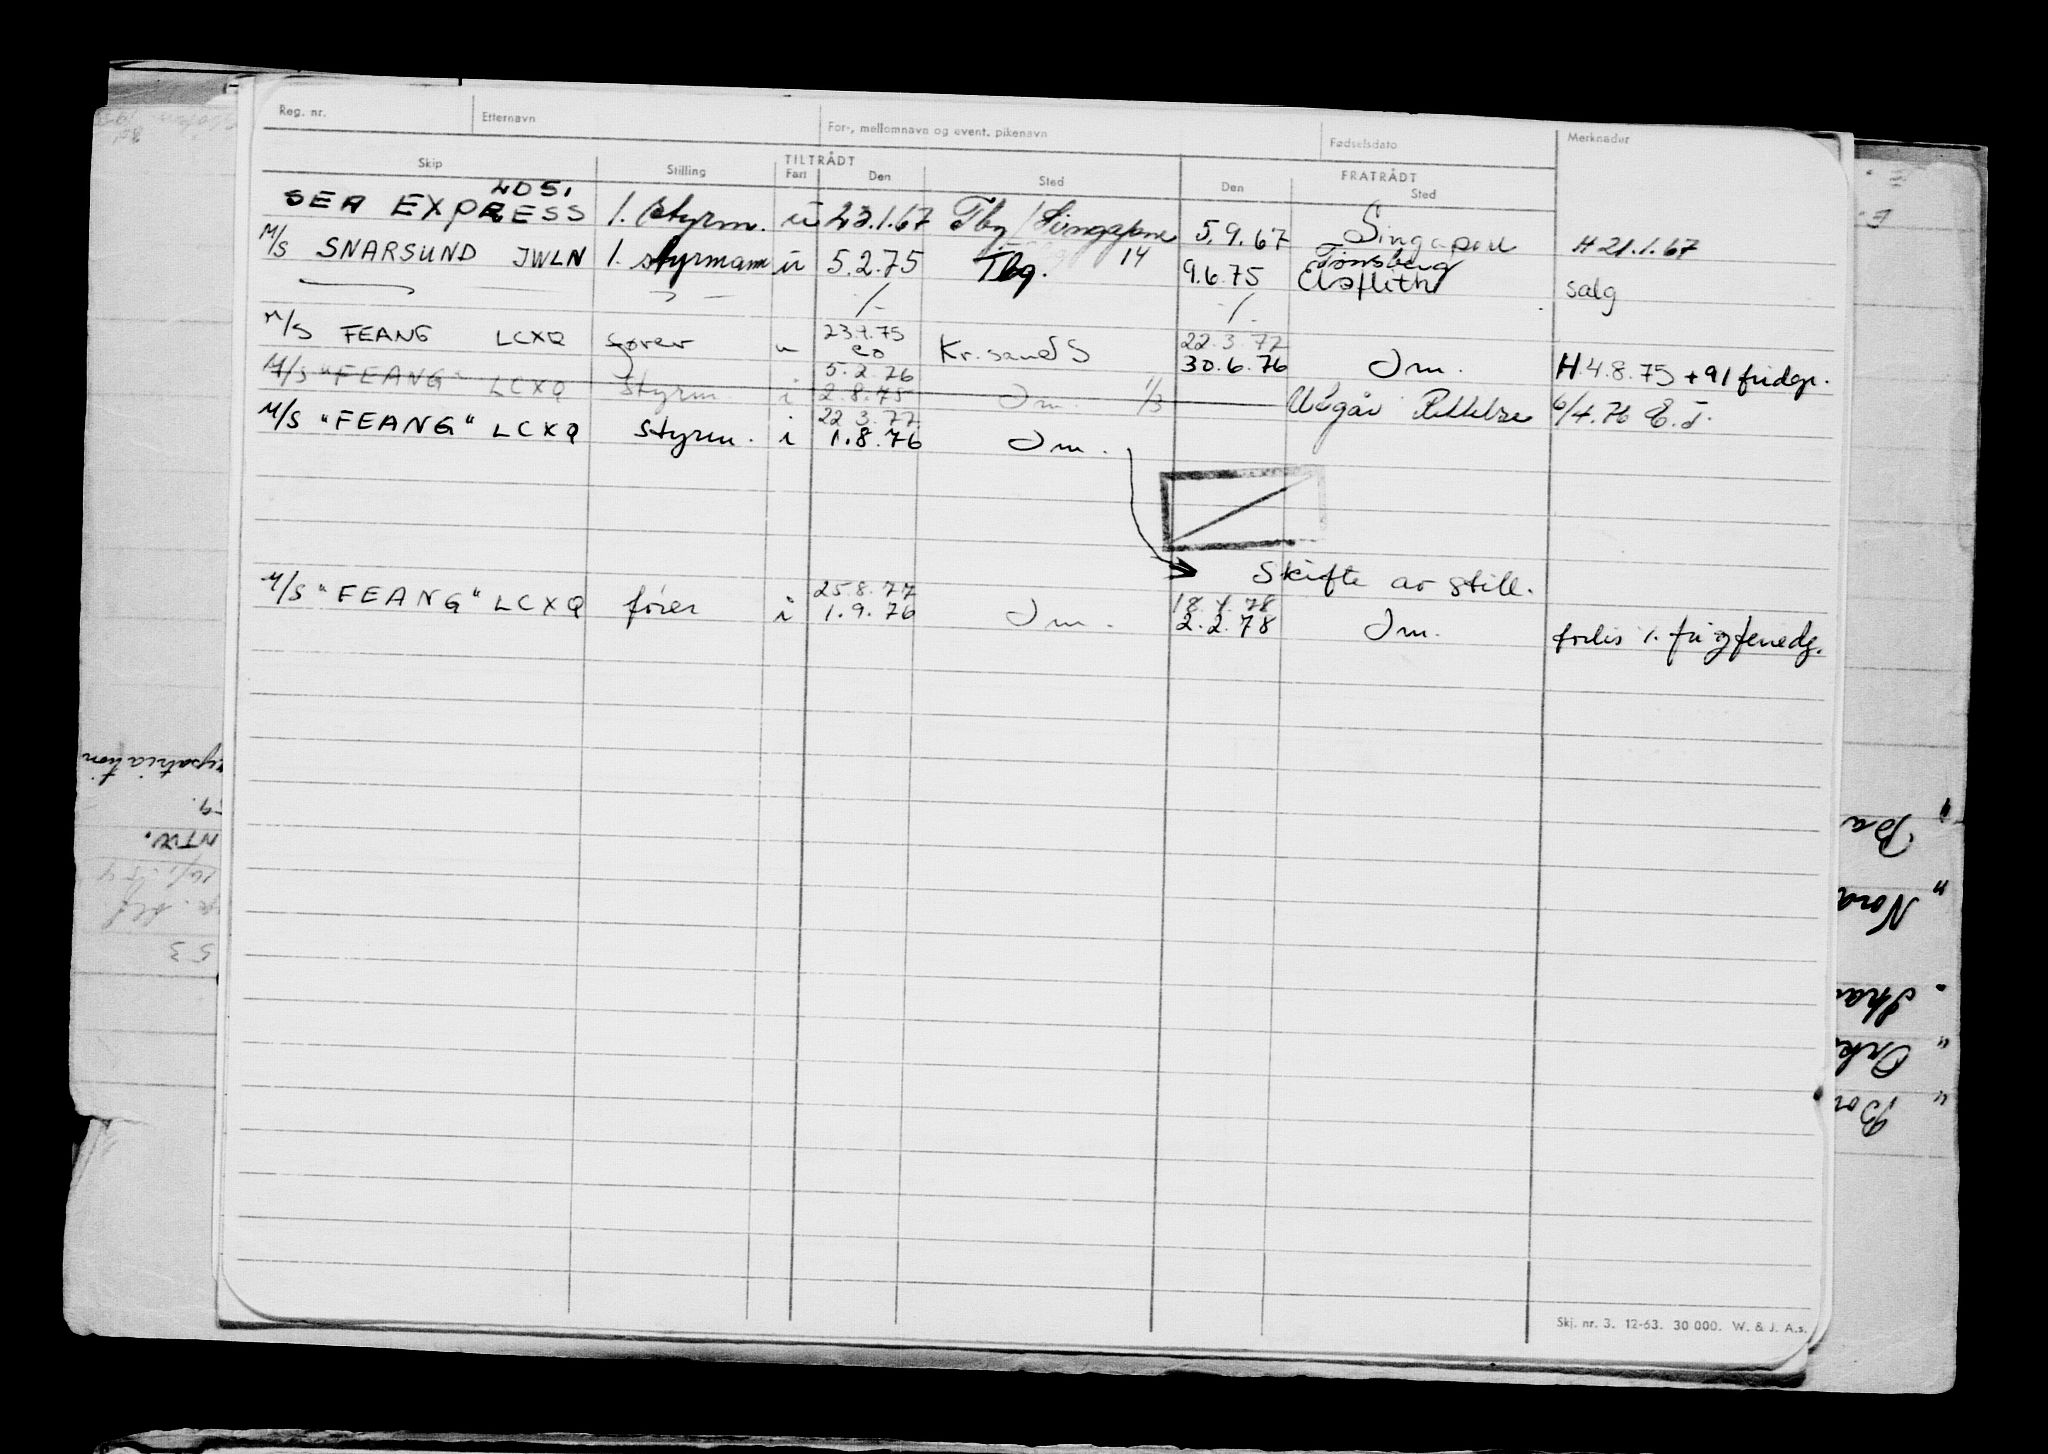 Reg. nr. Etternavn For-, mellomnavn og event. pikenavn Fødselsdato Merknader
Skip Stilling TILTRÅDT FRATRÅDT
Fart Den Sted Den Sted
LDSI
SEA EXPRESS 1. Styrm. u 23.1.67 Tbg/Singapore 5.9.67 Singapore H 21.1.67
M/S SNARSUND JWLN 1. styrmann u 5.2.75 Tbg. 14 9.6.75 Tønsberg Elsflith salg
-/- -/-
23.9.75 22.3.77
M/S FEANG LCXQ fører u Kr.sand S 30.6.76 Dm. H 4.8.75 + 91 fridgr.
5.2.76
M/S "FEANG" LCXQ styrm. i 2.8.75 Dm. 1/3 Utgår Rettelse 6/4.76 E.J.
22.3.77
M/S "FEANG" LCXQ styrm. i 1.8.76 Dm.
Skifte av still.
25.8.77 18.4.78
M/S "FEANG" LCXQ fører i 1.9.76 Dm. 2.2.78 Dm. forlis
Skj. nr. 3. 12-63. 30 000. W. & J. A.s.
repatriation
NTW.
53
Ba
" Nord
" Ork
" Bor